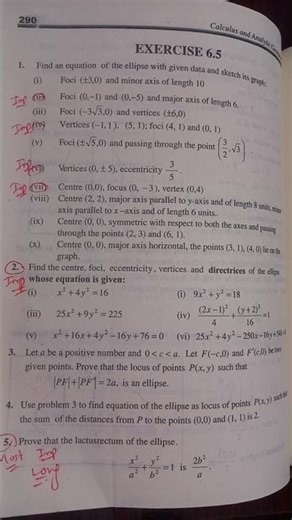 290
Calculus and Analytic
EXERCISE 6.5
1. Find an equation of the ellipse with given data and sketch its graph:
(i) Foci (±3,0) and minor axis of length 10
Imp (ii) Foci (0,−1) and (0,−5) and major axis of length 6.
(iii) Foci (−3√3,0) and vertices (±6,0)
Imp (iv) Vertices (−1,1), (5,1); foci (4,1) and (0,1)
(v) Foci (±√5,0) and passing through the point (3/2, √3)
Imp (vi) Vertices (0, ± 5), eccentricity 3/5.
Imp (vii) Centre (0,0), focus (0, −3), vertex (0,4)
(viii) Centre (2, 2), major axis parallel to y-axis and of length 8 units, minor
axis parallel to x–axis and of length 6 units.
(ix) Centre (0, 0), symmetric with respect to both the axes and passing
through the points (2, 3) and (6, 1).
(x) Centre (0, 0), major axis horizontal, the points (3, 1), (4, 0) lie on the
graph.
2. Find the centre, foci, eccentricity, vertices and directrices of the ellipse
Imp whose equation is given:
(i) x² + 4y² = 16 (i) 9x² + y² = 18
(iii) 25x² + 9y² = 225 (iv) (2x−1)²/4 + (y+2)²/16 = 1
(v) x² + 16x + 4y² − 16y + 76 = 0 (vi) 25x² + 4y² − 250x − 16y
3. Let a be a positive number and 0 < c < a. Let F(−c,0) and F′(c,0) be two
given points. Prove that the locus of points P(x, y) such that
|PF| + |PF′| = 2a, is an ellipse.
4. Use problem 3 to find equation of the ellipse as locus of points P(x, y) such that
the sum of the distances from P to the points (0,0) and (1, 1) is 2.
5. Prove that the lactusrectum of the ellipse.
Most Imp x²/a² + y²/b² = 1 is 2b²/a.
Long